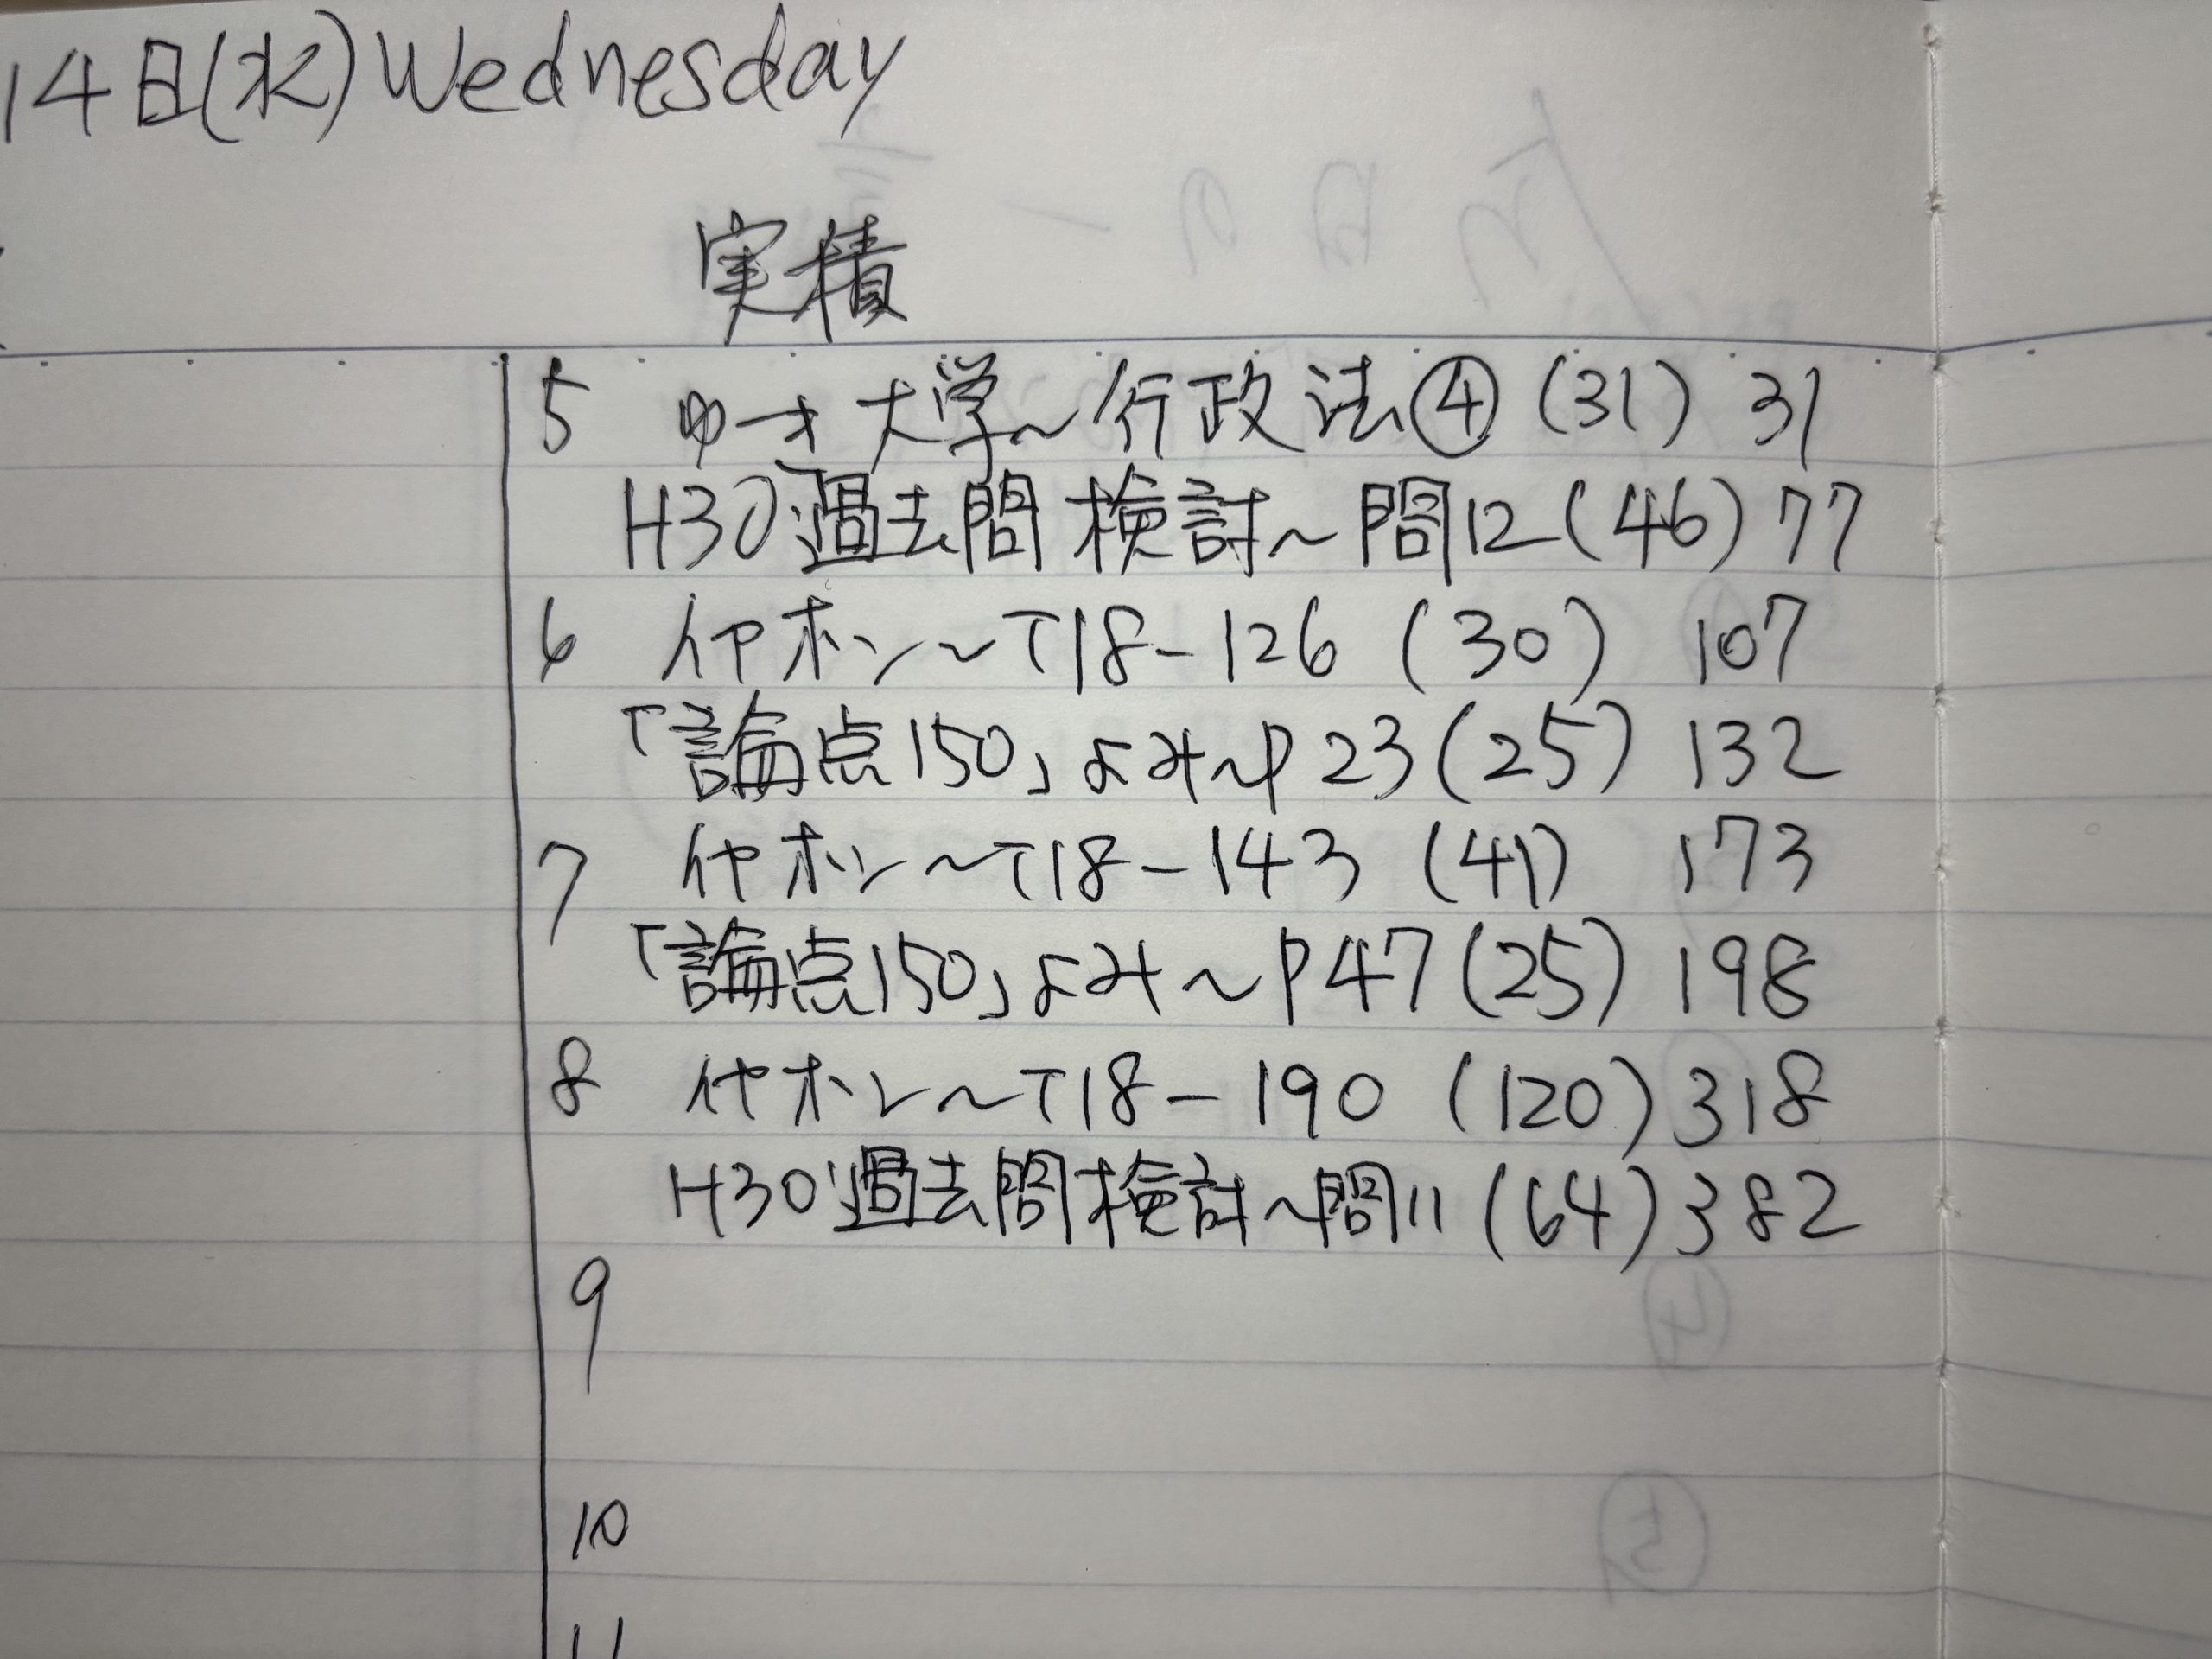 14日(水)Wednesday
実積
5 ゆーき大学~行政法④(31) 31
H30過去問検討~問12(46)77
6 イヤホン~T18-126(30) 107
「論点150」よみ~P23(25) 132
7 イヤホン~T18-143(41) 173
「論点150」よみ~P47(25) 198
8 イヤホン~T18-190(120)318
H30過去問検討~問11(64)382
9
10
11